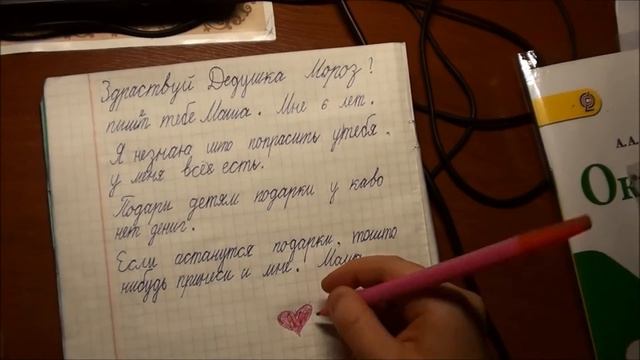 Здраствуй Дедушка Мороз?
пишит тебе Маша. Мне 6 лет.
Я незнаю што попрасить утебя.
у меня всёя есть.
Подари детям подарки у каво
нет дениг.
Если астанутся подарки, тошто
нибудь принеси и мне. Маша
А.А.
Ок